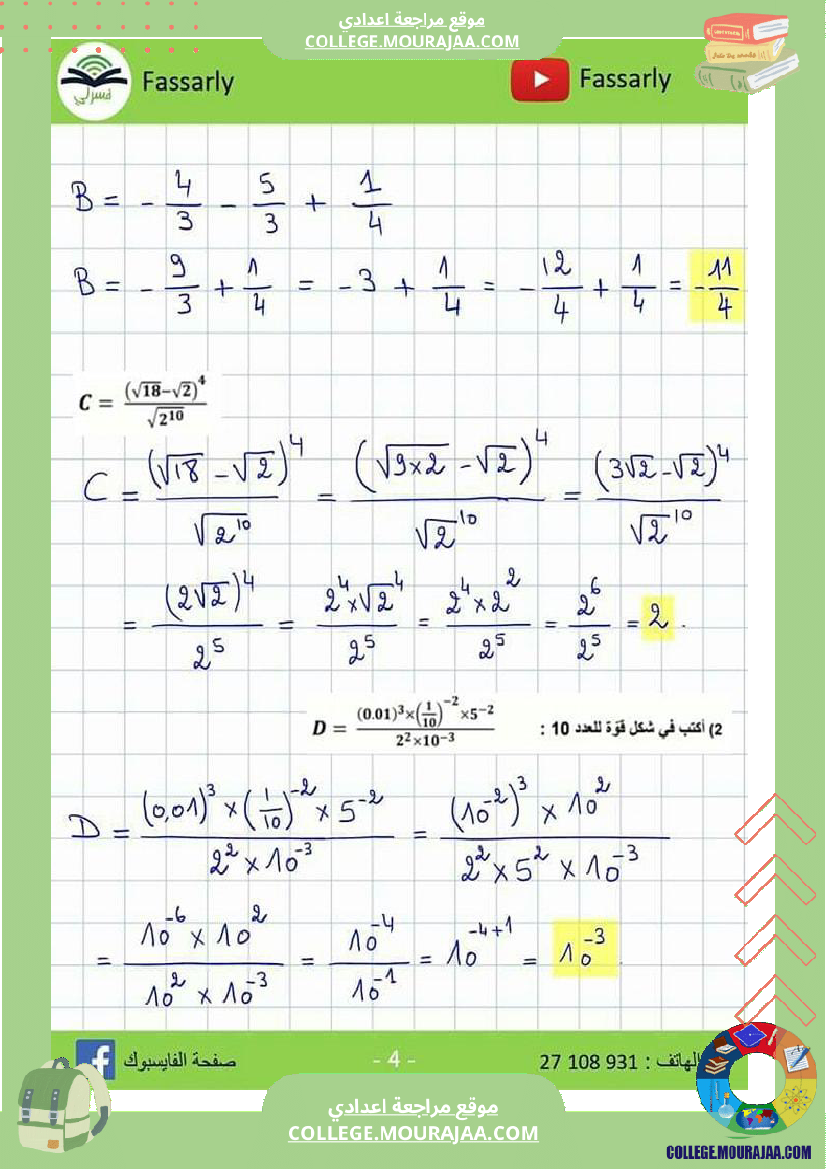 موقع مراجعة اعدادي
COLLEGE.MOURAJAA.COM
فسرلي Fassarly Fassarly
B = - 4/3 - 5/3 + 1/4
B = - 9/3 + 1/4 = - 3 + 1/4 = - 12/4 + 1/4 = - 11/4
C = (√18−√2)^4 / √(2^10)
C = (√18 - √2)^4 / √(2^10) = (√(9×2) - √2)^4 / √2^10 = (3√2 - √2)^4 / √2^10
= (2√2)^4 / 2^5 = 2^4 × √2^4 / 2^5 = 2^4 × 2^2 / 2^5 = 2^6 / 2^5 = 2 .
2) أكتب في شكل قوّة للعدد 10 : D = (0.01)^3×(1/10)^−2×5^−2 / 2^2×10^−3
D = (0,01)^3 × (1/10)^-2 × 5^-2 / 2^2 × 10^-3 = (10^-2)^3 × 10^2 / 2^2 × 5^2 × 10^-3
= 10^-6 × 10^2 / 10^2 × 10^-3 = 10^-4 / 10^-1 = 10^-4+1 = 10^-3 .
صفحة الفايسبوك - 4 - الهاتف : 27 108 931
موقع مراجعة اعدادي
COLLEGE.MOURAJAA.COM
COLLEGE.MOURAJAA.COM